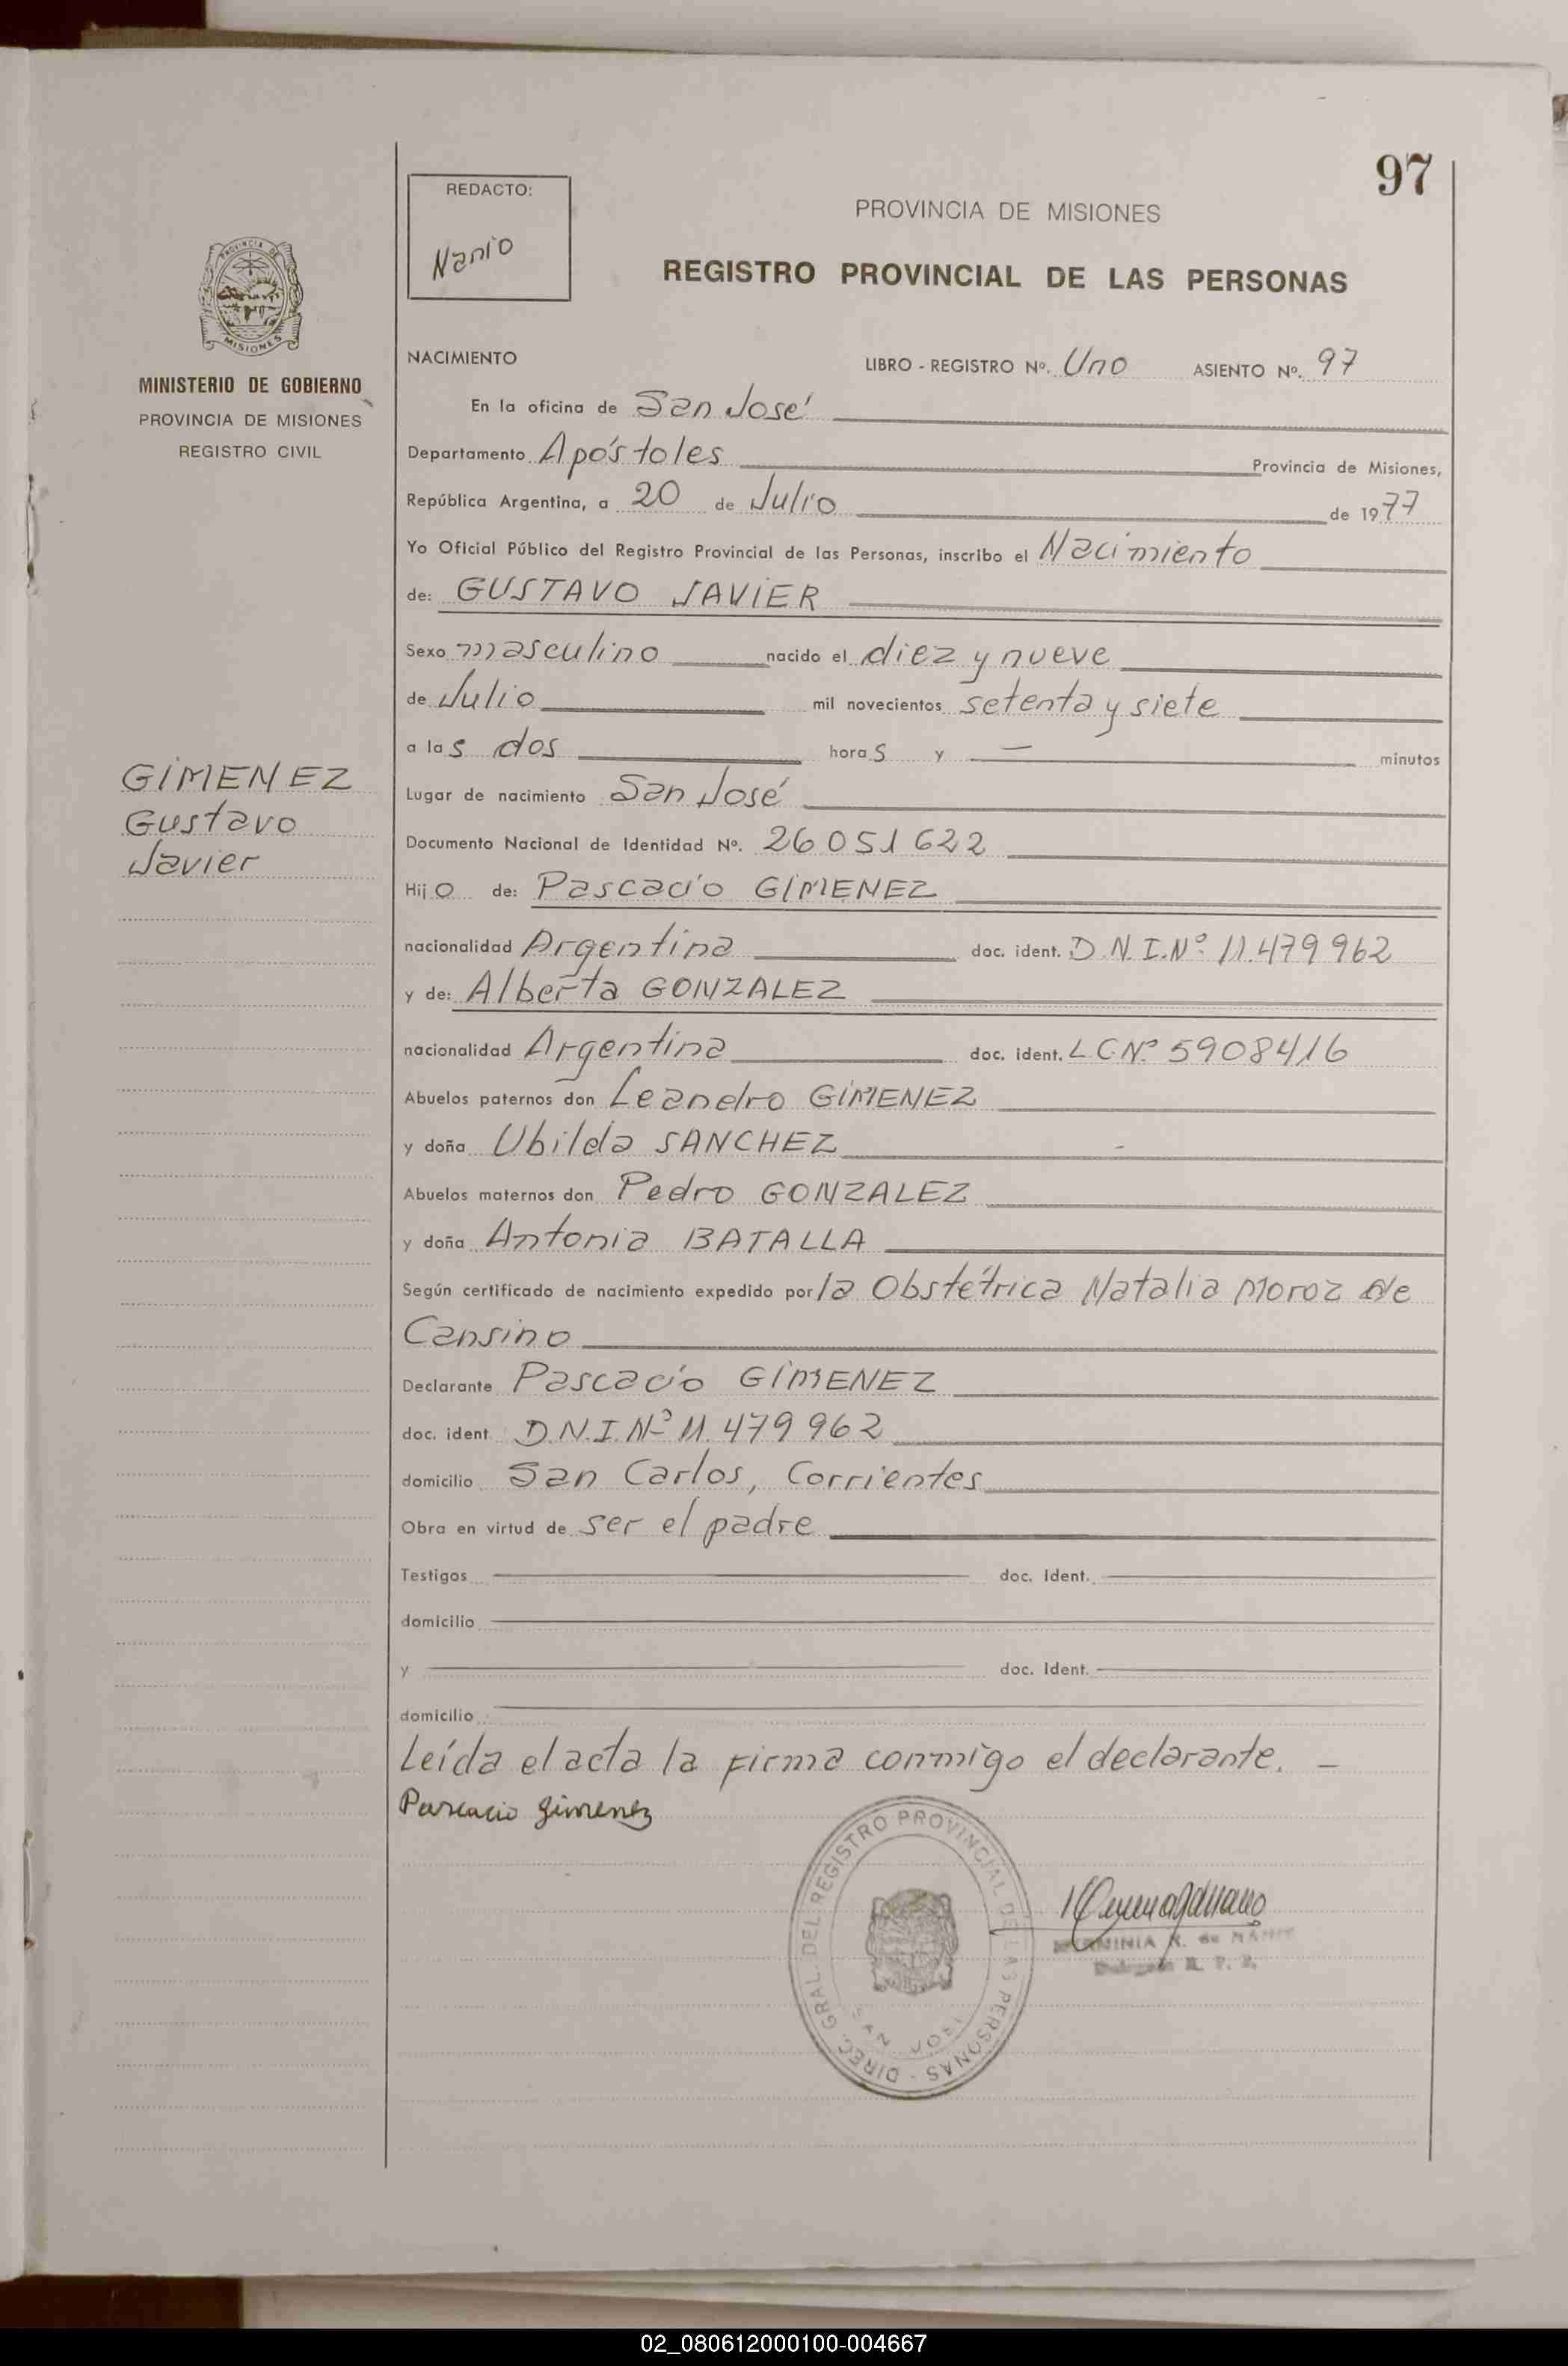 97
REDACTO:
Nanio
PROVINCIA DE MISIONES
REGISTRO PROVINCIAL DE LAS PERSONAS
PROVINCIA DE
MISIONES
MINISTERIO DE GOBIERNO
PROVINCIA DE MISIONES
REGISTRO CIVIL
GIMENEZ
Gustavo
Javier
NACIMIENTO LIBRO - REGISTRO Nº. Uno ASIENTO Nº. 97
En la oficina de San José
Departamento Apóstoles Provincia de Misiones,
República Argentina, a 20 de Julio de 1977
Yo Oficial Público del Registro Provincial de las Personas, inscribo el Nacimiento
de: GUSTAVO JAVIER
Sexo masculino nacido el diez y nueve
de Julio mil novecientos setenta y siete
a las dos horas y — minutos
Lugar de nacimiento San José
Documento Nacional de Identidad Nº. 26.051622
Hijo de: Pascacio GIMENEZ
nacionalidad Argentina doc. ident. D.N.I.Nº 11.479962
y de: Alberta GONZALEZ
nacionalidad Argentina doc. ident. L.C.Nº 5908416
Abuelos paternos don Leandro GIMENEZ
y doña Ubilda SANCHEZ
Abuelos maternos don Pedro GONZALEZ
y doña Antonia BATALLA
Según certificado de nacimiento expedido por la Obstétrica Natalia Moroz de
Cansino
Declarante Pascacio GIMENEZ
doc. ident. D.N.I.Nº 11.479962
domicilio San Carlos, Corrientes
Obra en virtud de ser el padre
Testigos doc. Ident.
domicilio
y doc. Ident.
domicilio
Leída el acta la firma conmigo el declarante. —
Pascacio Gimenez
DIREC. GRAL. DEL REGISTRO PROVINCIAL DE LAS PERSONAS -
SAN JOSE
02_080612000100-004667